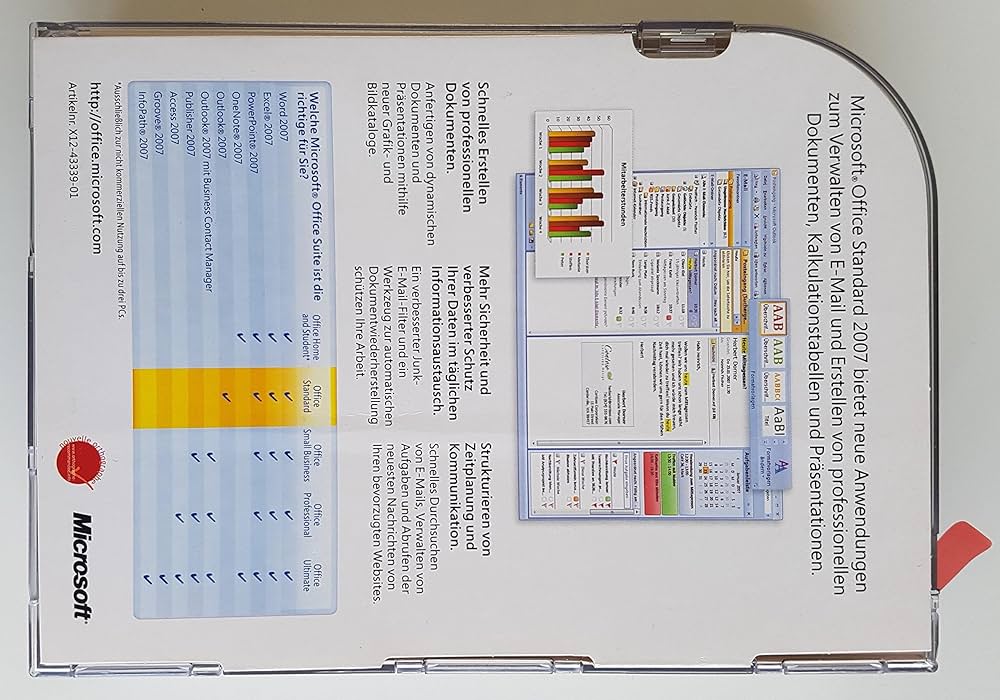 Microsoft® Office Standard 2007 bietet neue Anwendungen
zum Verwalten von E-Mail und Erstellen von professionellen
Dokumenten, Kalkulationstabellen und Präsentationen.
Mitarbeiterstunden
AAB
AAB
AABBC
AaB
Schnelles Erstellen
von professionellen
Dokumenten.
Anfertigen von dynamischen
Dokumenten und
Präsentationen mithilfe
neuer Grafik- und
Bildkataloge.
Mehr Sicherheit und
verbesserter Schutz
Ihrer Daten im täglichen
Informationsaustausch.
Ein verbesserter Junk-
E-Mail-Filter und ein
Werkzeug zur automatischen
Dokumentwiederherstellung
schützen Ihre Arbeit.
Strukturieren von
Zeitplanung und
Kommunikation.
Schnelles Durchsuchen
von E-Mails, Verwalten von
Aufgaben und Abrufen der
neuesten Nachrichten von
Ihren bevorzugten Websites.
Welche Microsoft® Office Suite ist die
richtige für Sie?
Office Home
and Student*
Office
Standard
Office
Small Business
Office
Professional
Office
Ultimate
Word 2007
Excel® 2007
PowerPoint® 2007
OneNote® 2007
Outlook® 2007
Outlook® 2007 mit Business Contact Manager
Publisher 2007
Access 2007
Groove® 2007
InfoPath® 2007
*Ausschließlich zur nicht kommerziellen Nutzung auf bis zu drei PCs.
http://office.microsoft.com
Artikelnr. X12-43339-01
Microsoft®